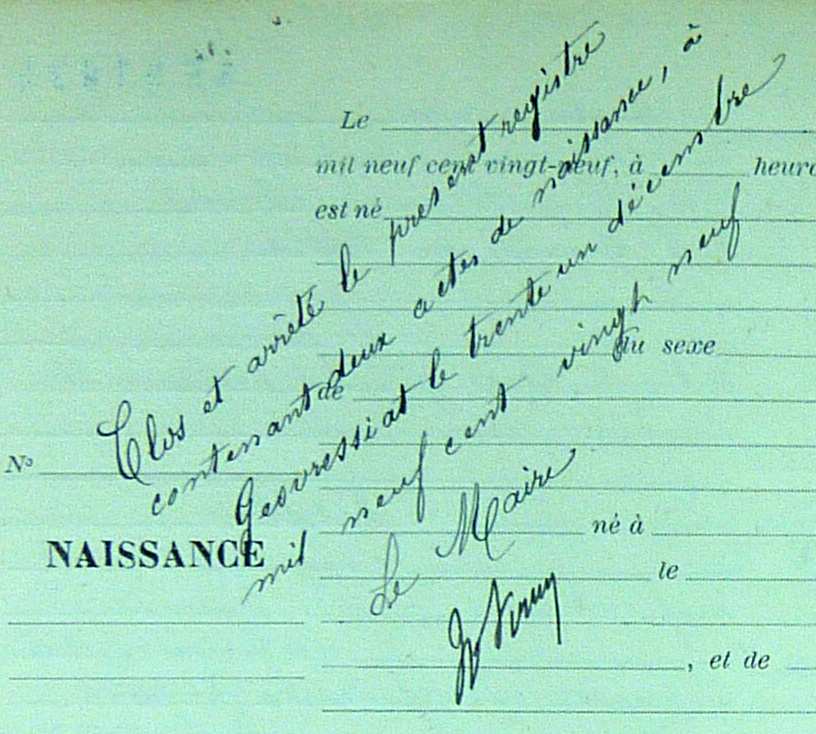 Le
mil neuf cent vingt-neuf, à heure
est né
du sexe
de
No
NAISSANCE
né à
le
, et de
Clos et arrêté le present registre
contenant deux actes de naissance, à
Geovressiat le trente un décembre
mil neuf cent vingt neuf
Le Maire